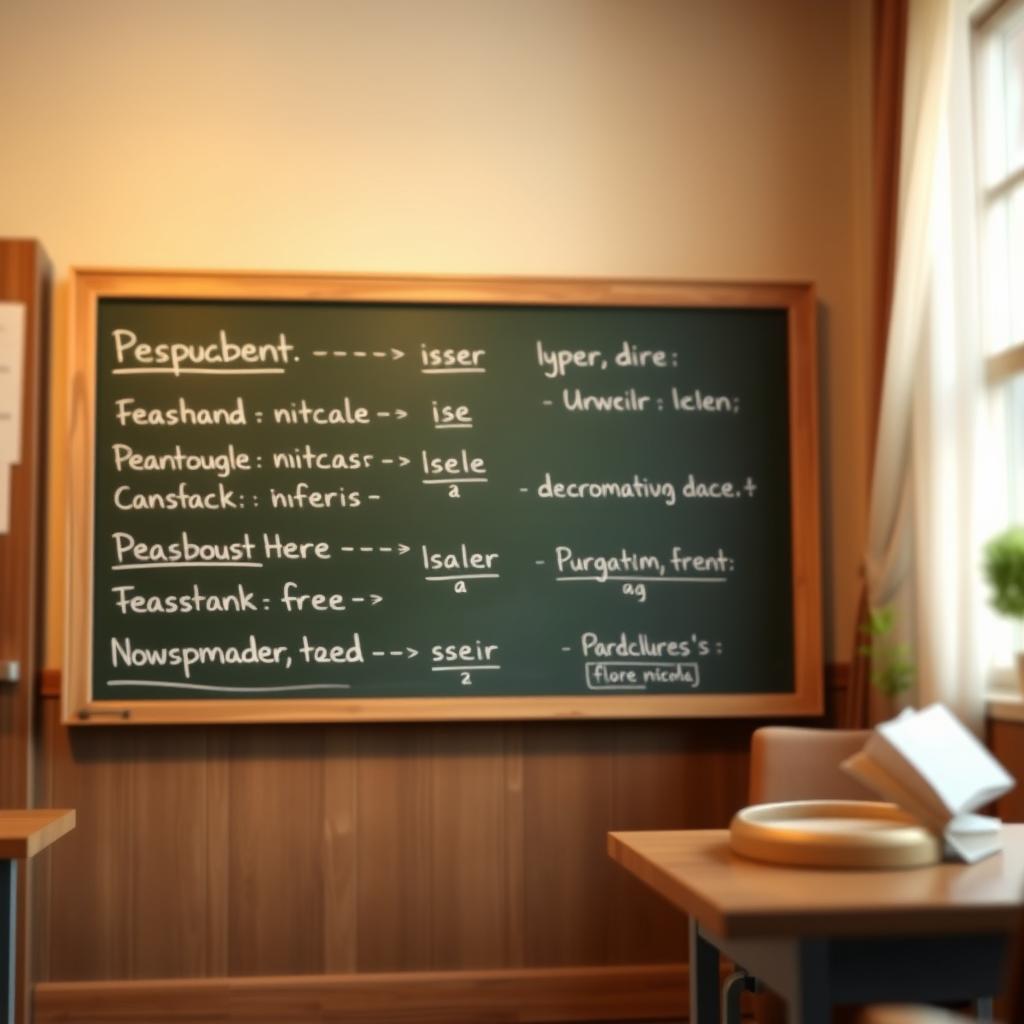 Pespucbent. ----> isser
Feashand : nitcale --> ise
Peantougle : niitcasr --> lsele
a
Canstack:: inferis -
Peasboust Here ---> lsaler
a
Feasstank : free -->
Nowspmader, tæed --> sseir
2
lyper, dire :
- Urweilr : lclen;
- decromativg dace.t
- Purgatim, frent:
ag
- Pardclures's :
flore nicola